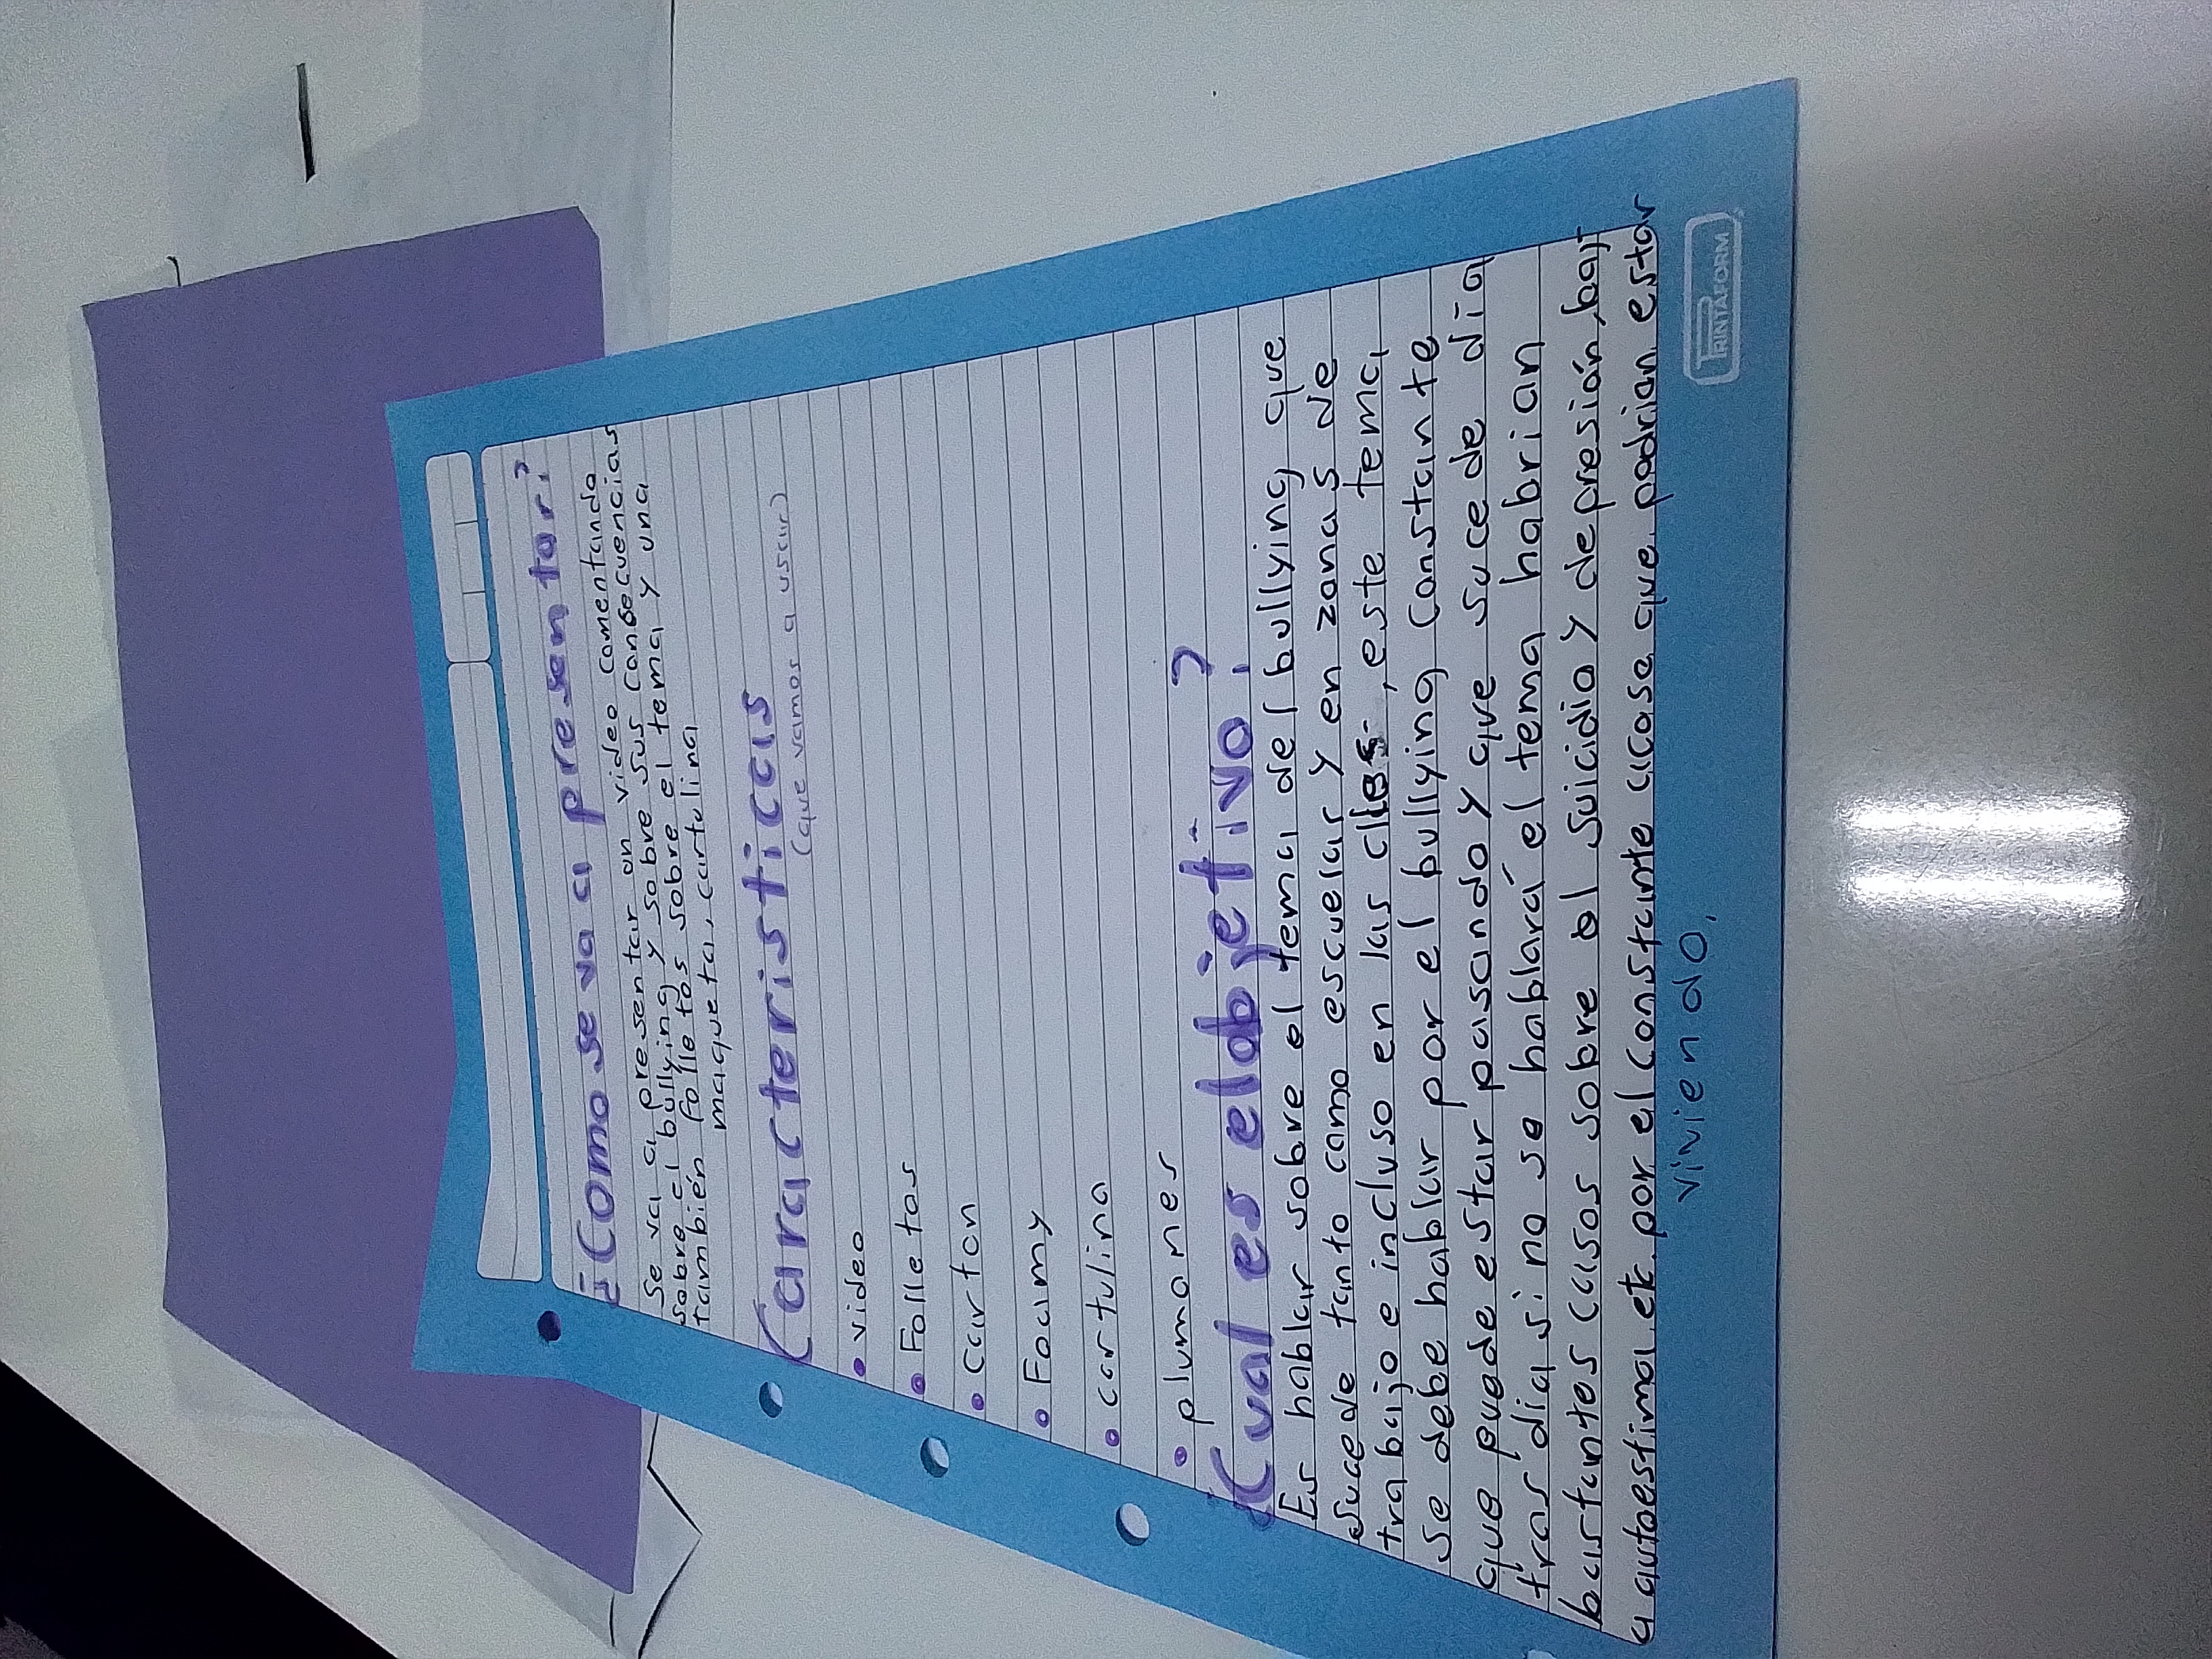 ¿Como se va a presentar?
Se va a presentar un video comentando
sobre el bullying y sobre sus consecuencias
también folletos sobre el tema y una
maqueta, cartulina
Caracteristicas
(que vamos a usar)
• video
• Folletos
• carton
• Foamy
• cartulina
• plumones
¿Cual es el objetivo?
Es hablar sobre el tema del bullying que
sucede tanto como escuelas y en zonas de
trabajo e incluso en las clles, este tema
se debe hablar por el bullying constante
que puede estar pasando y que sucede dia
tras dia si no se hablará el tema habrian
bastantes casos sobre el suicidio y depresión, baj-
a autoestima, etc. por el constante acoso que podrian estar
viviendo.
PRINTAFORM